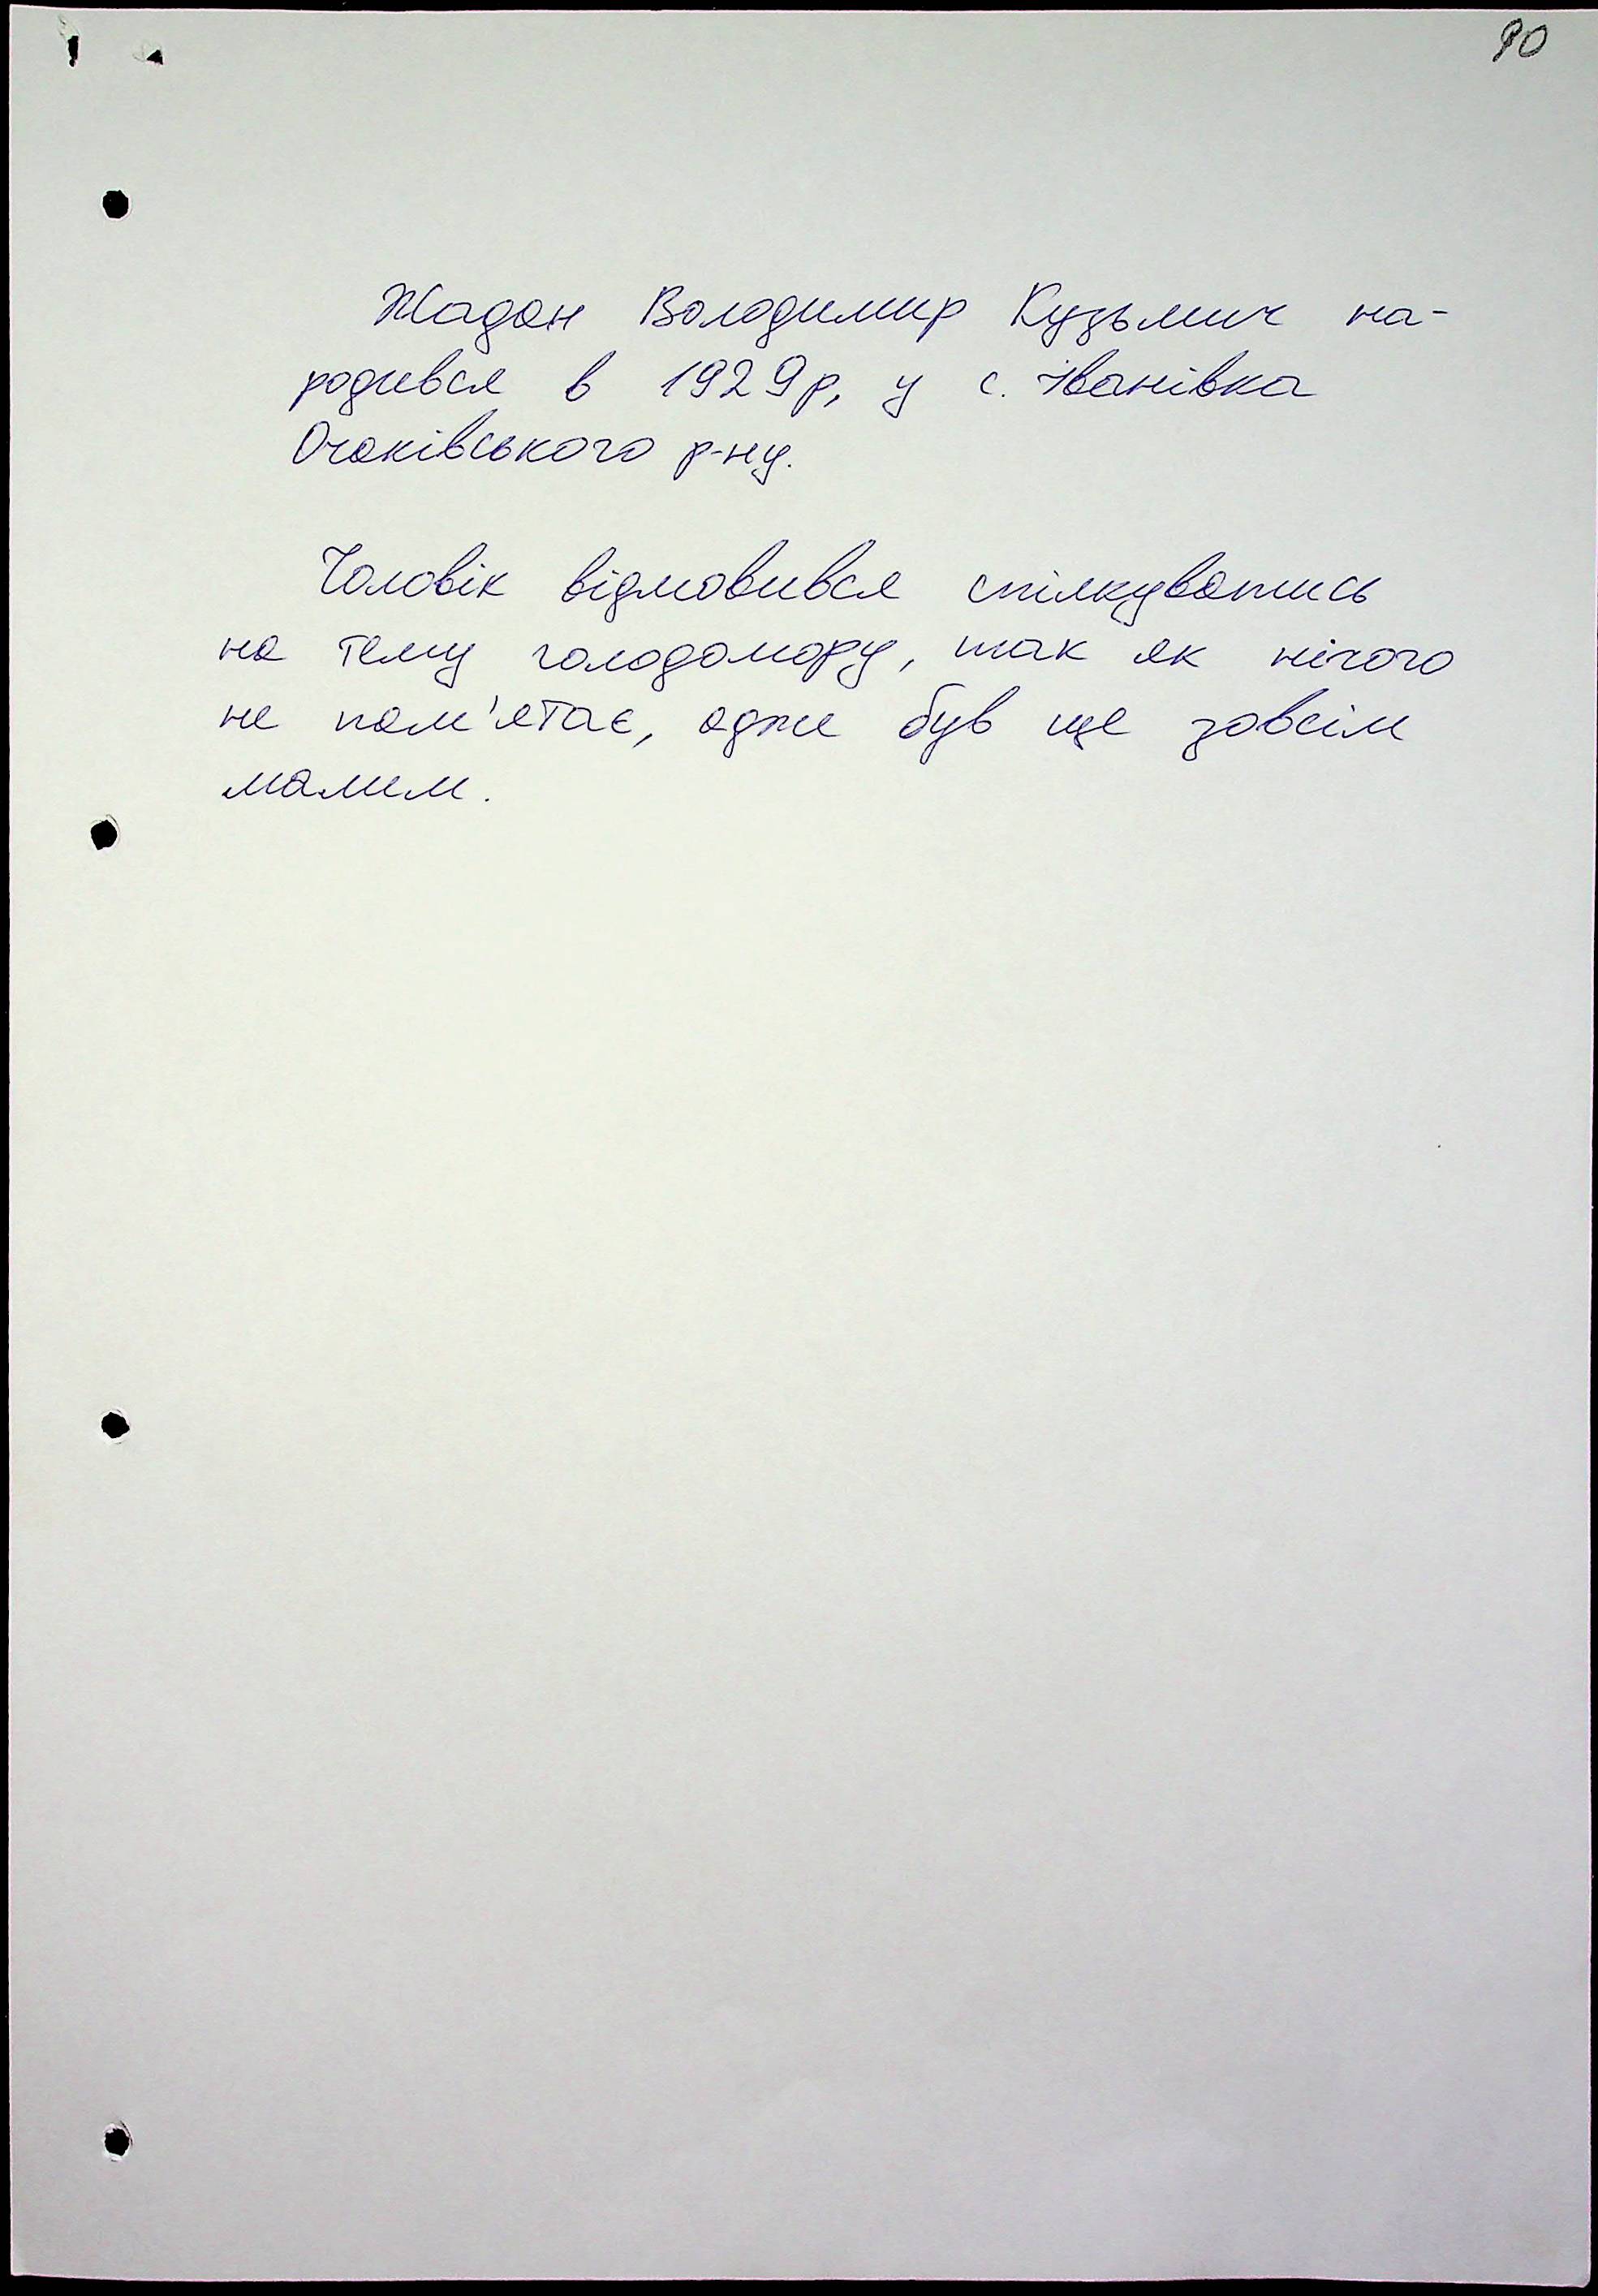 90
Жадан Володимир Кузьмич на-
родився в 1929р, у с. Іванівка
Очаківського р-ну.
Чоловік відмовився спілкуватись
на тему голодомору, так як нічого
не пам'ятає, адже був ще зовсім
малим.